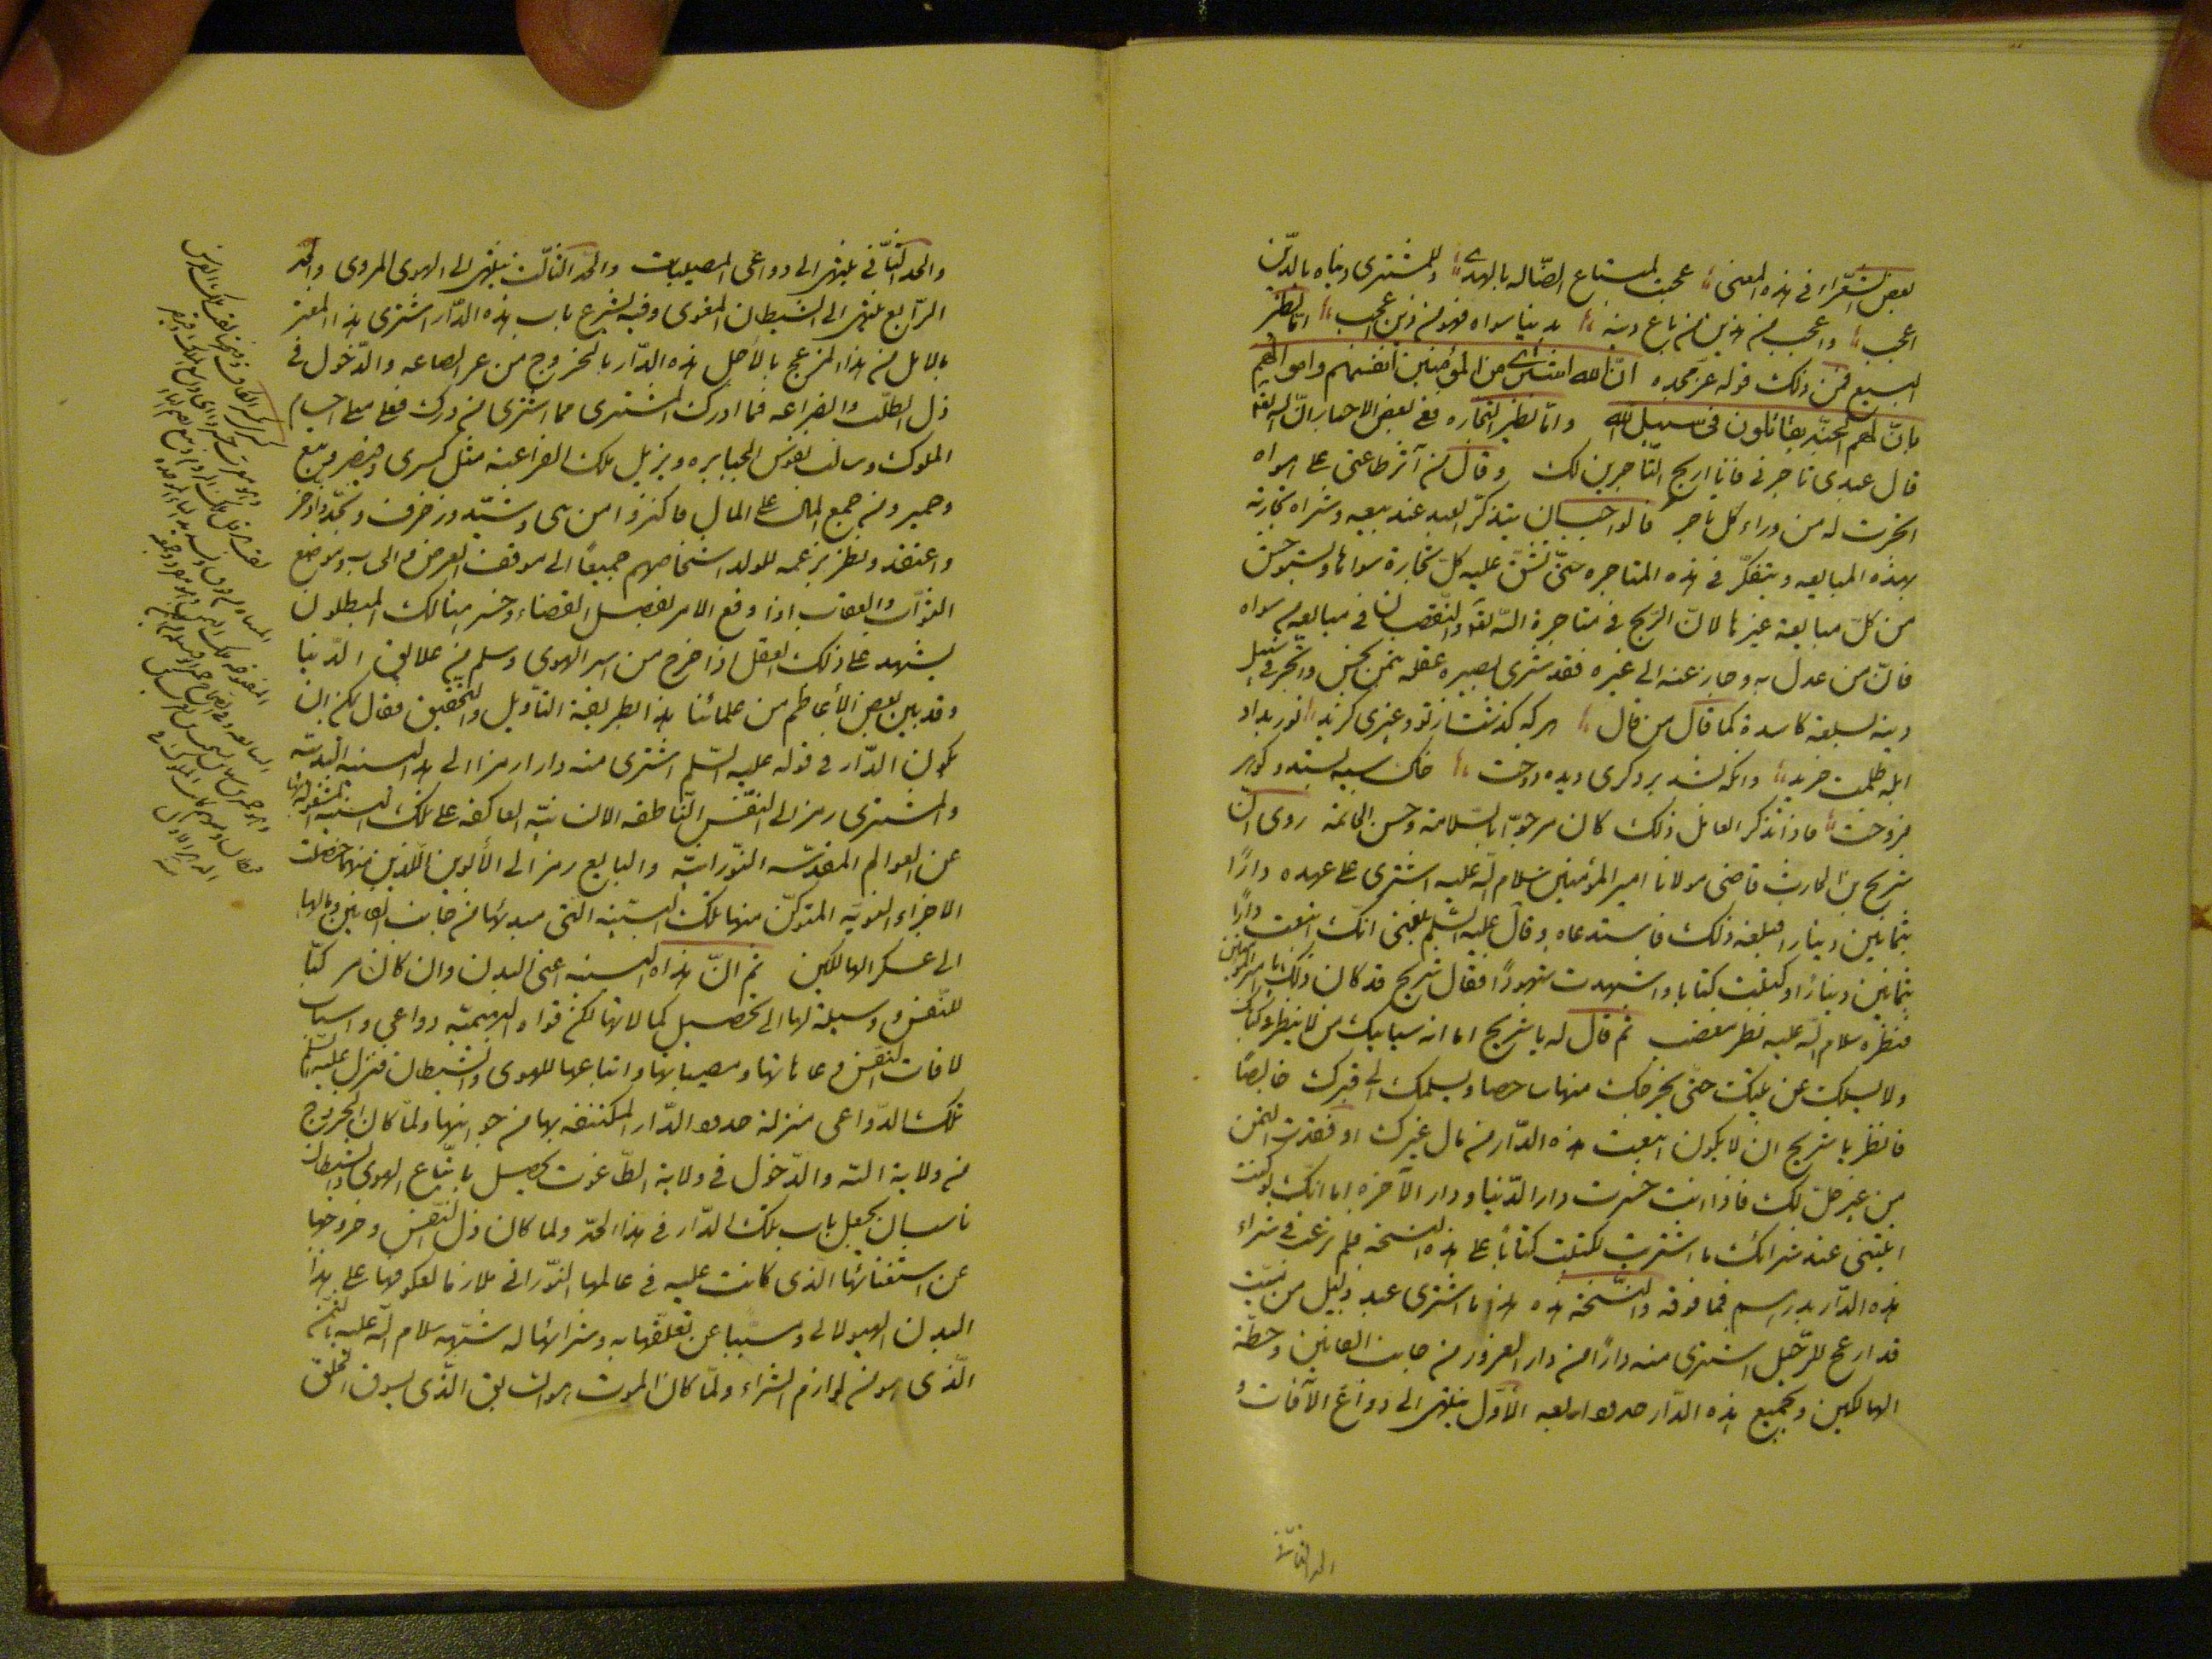 بعض الشعراء فی هذه المعنی عجبت لمبتاع الضاله بالهدی وللمشتری دنیاه بالدین
اعجب واعجب من هذین من باع دینه بدنیا سواه فهو من ذین اعجب اما نظیر
البیع فمن ذلک قوله عز مجده ان الله اشتری من المؤمنین انفسهم واموالهم
بان لهم الجنة یقاتلون فی سبیل الله واما نظیر التجاره ففی بعض الاخبار ان الله تعالی
قال عبدی تاجرنی فانا اربح التاجرین لک وقال من آثر طاعتی علی هواه
اتجرت له من وراء کل تاجر قالوا حسبان یتذکر العبد عند بیعه وشراه تجارته
بهذه المبایعه ویتفکر فی هذه المتاجره حتی تشق علیه کل تجارة سواها ویستوحش
من کل مبایعة غیرها لان الربح فی متاجرة الله تعالی والنقصان فی مبایعه من سواه
فان من عدل به وجاز عنه الی غیره فقد شری بصیره عقله بثمن بخس واتجر فی سبیل
دینه بسلعة کاسدة کما قال من قال هرکه گذشت از تو وغیری گزید نور بداد
ابله ظلمت خرید وانکه بشد بر دگری دیده دوخت خاک سیه بستد وگوهر
فروخت فاذا تذکر العامل ذلک کان مرجوا بالسلامة وحسن الخاتمه روی ان
شریح بن الحارث قاضی مولانا امیر المؤمنین سلام الله علیه اشتری علی عهده دارا
بثمانین دینارا فبلغه ذلک فاستدعاه وقال علیه السلم بلغنی انک ابتعت دارا
بثمانین دینارا وکتبت کتابا واشهدت شهودا فقال شریح قد کان ذلک یا امیر المؤمنین
فنظره سلام الله علیه نظر مغضب ثم قال له یا شریح اما انه سیاتیک من لا ینظر فی کتابک
ولا یسلک عن بینتک حتی یخرجک منها شاخصا ویسلمک الی قبرک خالصا
فانظر یا شریح ان لا یکون ابتعت هذه الدار من مال غیرک او نقدت الثمن
من غیر حل لک فاذا انت خسرت دار الدنیا ودار الآخره اما انک لو کنت
اتیتنی عند شرائک ما اشتریت لکتبت کتابا علی هذه النسخه فلم ترغب فی شراء
هذه الدار بدرهم فما فوقه والنسخة هذه هذا ما اشتری عبد ذلیل من میت
قد ازعج للرحیل اشتری منه دارا من دار الغرور من جانب الفانین وخطة
الهالکین وتجمیع هذه الدار حدود اربعه الاول ینتهی الی دواعی الآفات و
الحد الثانی
والحد الثانی ینتهی الی دواعی المصیبات والحد الثالث ینتهی الی الهوی المردی والحد
الرابع ینتهی الی الشیطان المغوی وفیه یشرع باب هذه الدار اشتری هذا المغتر
بالامل من هذا المزعج بالاجل هذه الدار بالخروج من عز القناعه والدخول فی
ذل الطلب والضراعه فما ادرک المشتری مما اشتری من درک فعلی مبلی اجسام
الملوک وسالب نفوس الجبابره ومزیل ملک الفراعنه مثل کسری وقیصر وتبع
وحمیر ومن جمع المال علی المال فاکثر وامن بنی وشید وزخرف ونجد وادخر
واعتقد ونظر بزعمه للولد اشخاصهم جمیعا الی موقف العرض والحساب وموضع
الثواب والعقاب اذا وقع الامر بفصل القضاء وخسر هنالک المبطلون
یشهد علی ذلک العقل اذا خرج من اسر الهوی وسلم من علایق الدنیا
وقد بین بعض الأعاظم من علمائنا هذا بطریقة التاویل والتحقیق فقال یمکن ان
یکون الدار فی قوله علیه السلم اشتری منه دارا رمزا الی هذه البنیة البدنیة
والمشتری رمز الی النفس الناطقه الانسانیة العاکفه علی تلک البنیه المشغوله بها
عن العوالم المقدسه النورانیة والبایع رمز الی الأبوین اللذین منهما حصلت
الاجزاء المنویه المتوکن منها تلک البنیه التی مبدئها من جانب الفانین ومالها
الی عسکر الهالکین ثم ان هذه البنیه اعنی البدن وان کان مرکبا
للنفس ووسیلة لها الی تحصیل کمالاتها لکن قواه البهیمیه دواعی واسباب
لافات النفس وعاهاتها ومصیباتها واتباعها للهوی والشیطان فنزل علیه السلم
تلک الدواعی منزلة حدود الدار المکتنفه بها من جوانبها ولما کان الخروج
من ولایة الله والدخول فی ولایة الطاغوت یحصل باتباع الهوی والشیطان
ناسب ان یجعل باب تلک الدار فی هذا الحد ولما کان ذل النفس وخروجها
عن استغنائها الذی کانت علیه فی عالمها النورانی ملازما لعکوفها علی هذا
البدن الهیولانی ومسببا عن تعلقها به وشرائها له شبهه سلام الله علیه بالثمن
الذی هو من لوازم الشراء ولما کان الموت هو السابق الذی یسوق الخلق